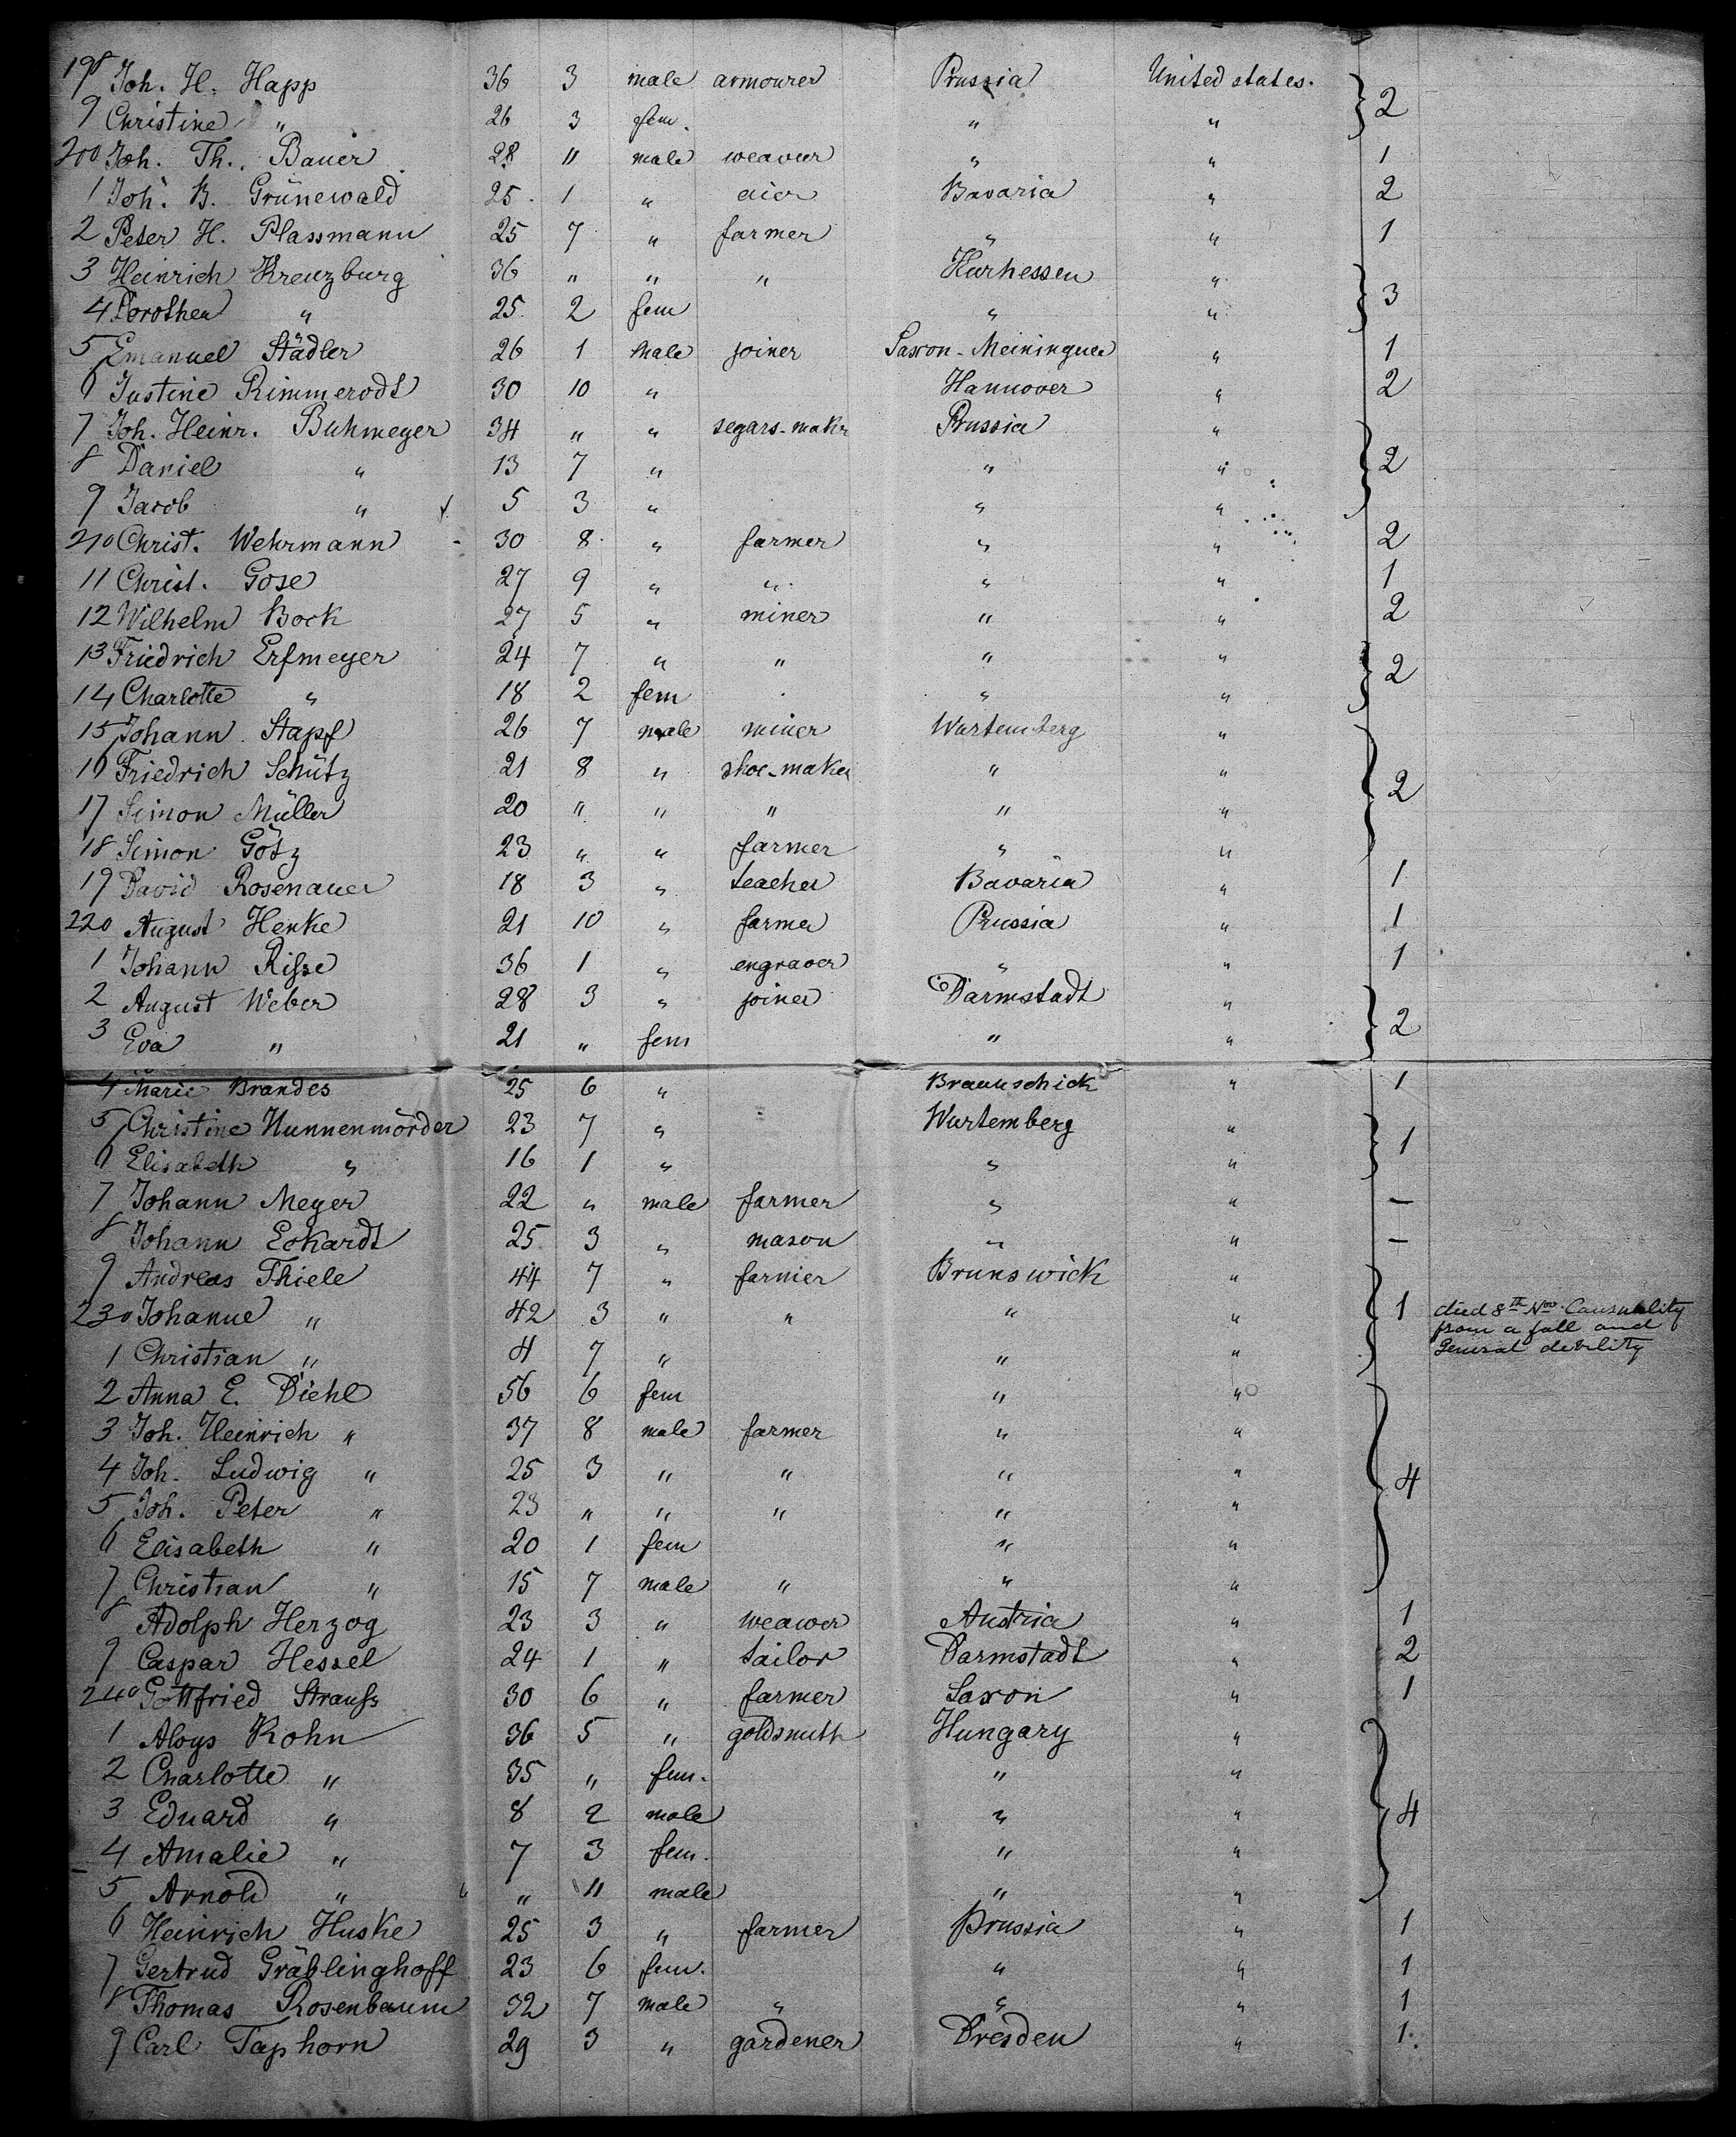 198 Joh. H. Happ 36 3 male armourer Prussia United states. } 2
9 Christine " 26 3 fem. " "
200 Joh. Th. Bauer 28 11 male weaver " " 1
1 Joh. B. Grünewald 25 1 " Bavaria " 2
2 Peter H. Plassmann 25 7 " farmer " " 1
3 Heinrich Kreuzburg 36 " " " Kurhessen " } 3
4 Dorothea " 25 2 fem " "
5 Emanuel Städler 26 1 male joiner Saxon-Meiningen " 1
6 Justine Rimmerodt 30 10 " Hannover " 2
7 Joh. Heinr. Buhmeyer 34 " " segars-makr Prussia " } 2
8 Daniel " 13 7 " " "
9 Jacob " 5 3 " " "
210 Christ. Wehrmann 30 8 " farmer " " 2
11 Christ. Gose 27 9 " " " " 1
12 Wilhelm Bock 27 5 " miner " " 2
13 Friedrich Erfmeyer 24 7 " " " " } 2
14 Charlotte " 18 2 fem " "
15 Johann Stapf 26 7 male miner Wurtemberg " } 2
16 Friedrich Schütz 21 8 " shoe-maker " "
17 Simon Müller 20 " " " " "
18 Simon Götz 23 " " farmer " "
19 David Rosenauer 18 3 " teacher Bavaria " 1
220 August Henke 21 10 " farmer Prussia " 1
1 Johann Risse 36 1 " engraver " " 1
2 August Weber 28 3 " joiner Darmstadt " } 2
3 Eva " 21 " fem " "
4 Marie Brandes 25 6 " Braunschick " 1
5 Christine Hunnenmörder 23 7 " Wurtemberg " } 1
6 Elisabeth " 16 1 " " "
7 Johann Meyer 22 " male farmer " " —
8 Johann Eckardt 25 3 " mason " " —
9 Andreas Thiele 44 7 " farmer Brunswick " } 1
230 Johanne " 42 3 " " " " died 8th Nov. Causuality
from a fall and
General debility
1 Christian " 4 7 " " "
2 Anna E. Diehl 56 6 fem " " } 4
3 Joh. Heinrich " 37 8 male farmer " "
4 Joh. Ludwig " 25 3 " " " "
5 Joh. Peter " 23 " " " " "
6 Elisabeth " 20 1 fem " "
7 Christian " 15 7 male " " "
8 Adolph Herzog 23 3 " weawer Austria " 1
9 Caspar Hessel 24 1 " tailor Darmstadt " 2
240 Gottfried Strauss 30 6 " farmer Saxon " 1
1 Aloys Kohn 36 5 " goldsmith Hungary " } 4
2 Charlotte " 35 " fem. " "
3 Eduard " 8 2 male " "
4 Amalie " 7 3 fem. " "
5 Arnold " " 11 male " "
6 Heinrich Huske 25 3 " farmer Prussia " 1
7 Gertrud Gräblinghoff 23 6 fem. " " 1
8 Thomas Rosenbaum 32 7 male " " " 1
9 Carl Taphorn 29 3 " gardener Dresden " 1.